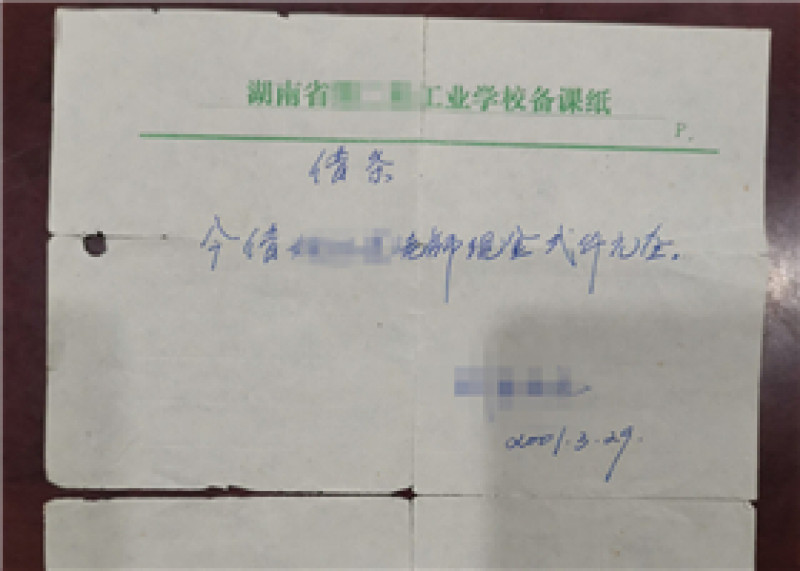 湖南省 二 工业学校备课纸
P.
借条
今借 老师现金贰仟元正.
2001.3.29.